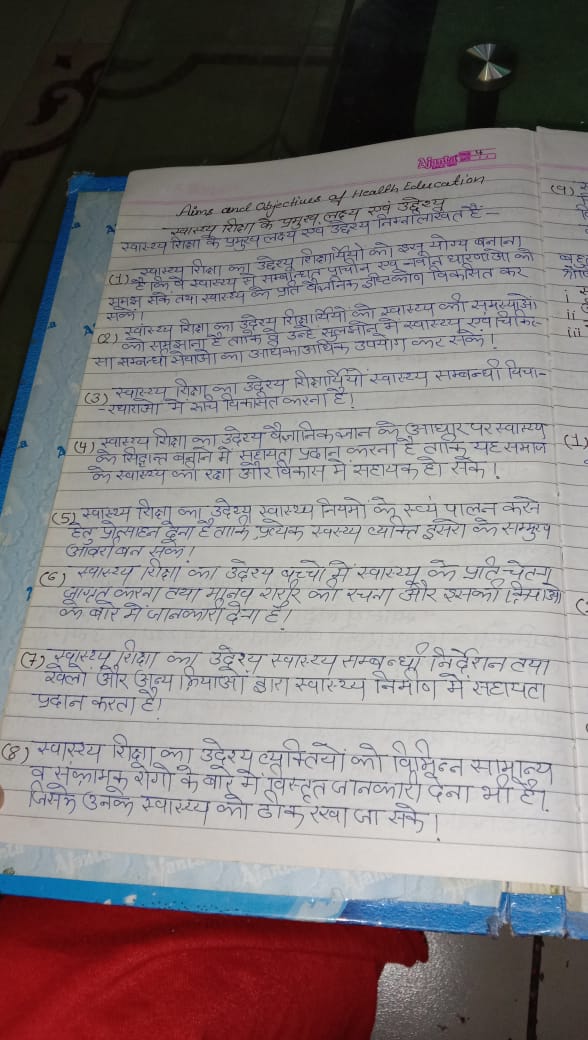 Ajanta
4
Aims and Objectives of Health Education
स्वास्थ्य शिक्षा के प्रमुख लक्ष्य एवं उद्देश्य
स्वास्थ्य शिक्षा के प्रमुख लक्ष्य एवं उद्देश्य निम्नलिखित हैं:—
(1) स्वास्थ्य शिक्षा का उद्देश्य शिक्षार्थियों को इस योग्य बनाना
है कि वे स्वास्थ्य से सम्बन्धित प्राचीन एवं नवीन धारणाओं को
समझ सकें तथा स्वास्थ्य के प्रति वैज्ञानिक दृष्टिकोण विकसित कर
सकें।
(2) स्वास्थ्य शिक्षा का उद्देश्य शिक्षार्थियों को स्वास्थ्य की समस्याओं
को समझाना है ताकि वे उन्हें सुलझाने में स्वास्थ्य एवं चिकि-
त्सा सम्बन्धी सेवाओं का अधिकाअधिक उपयोग कर सकें।
(3) स्वास्थ्य शिक्षा का उद्देश्य शिक्षार्थियों स्वास्थ्य सम्बन्धी विचा-
रधाराओं में रुचि विकसित करना है।
(4) स्वास्थ्य शिक्षा का उद्देश्य वैज्ञानिक ज्ञान के आधार पर स्वास्थ्य
के सिद्धान्त बनाने में सहायता प्रदान करना है ताकि यह समाज
के स्वास्थ्य की रक्षा और विकास में सहायक हो सके।
(5) स्वास्थ्य शिक्षा का उद्देश्य स्वास्थ्य नियमों के स्वयं पालन करने
हेतु प्रोत्साहन देना है ताकि प्रत्येक स्वस्थ्य व्यक्ति दूसरों के सम्मुख
आदर्श बन सके।
(6) स्वास्थ्य शिक्षा का उद्देश्य बच्चों में स्वास्थ्य के प्रति चेतना
जागृत करना तथा मानव शरीर की रचना और इसकी क्रियाओं
के बारे में जानकारी देना है।
(7) स्वास्थ्य शिक्षा का उद्देश्य स्वास्थ्य सम्बन्धी निर्देशन तथा
खेलों और अन्य क्रियाओं द्वारा स्वास्थ्य निर्माण में सहायता
प्रदान करता है।
(8) स्वास्थ्य शिक्षा का उद्देश्य व्यक्तियों को विभिन्न सामान्य
व संक्रामक रोगों के बारे में विस्तृत जानकारी देना भी है।
जिससे उनके स्वास्थ्य को ठीक रखा जा सके।
(9)
i
ii
iii
(1)